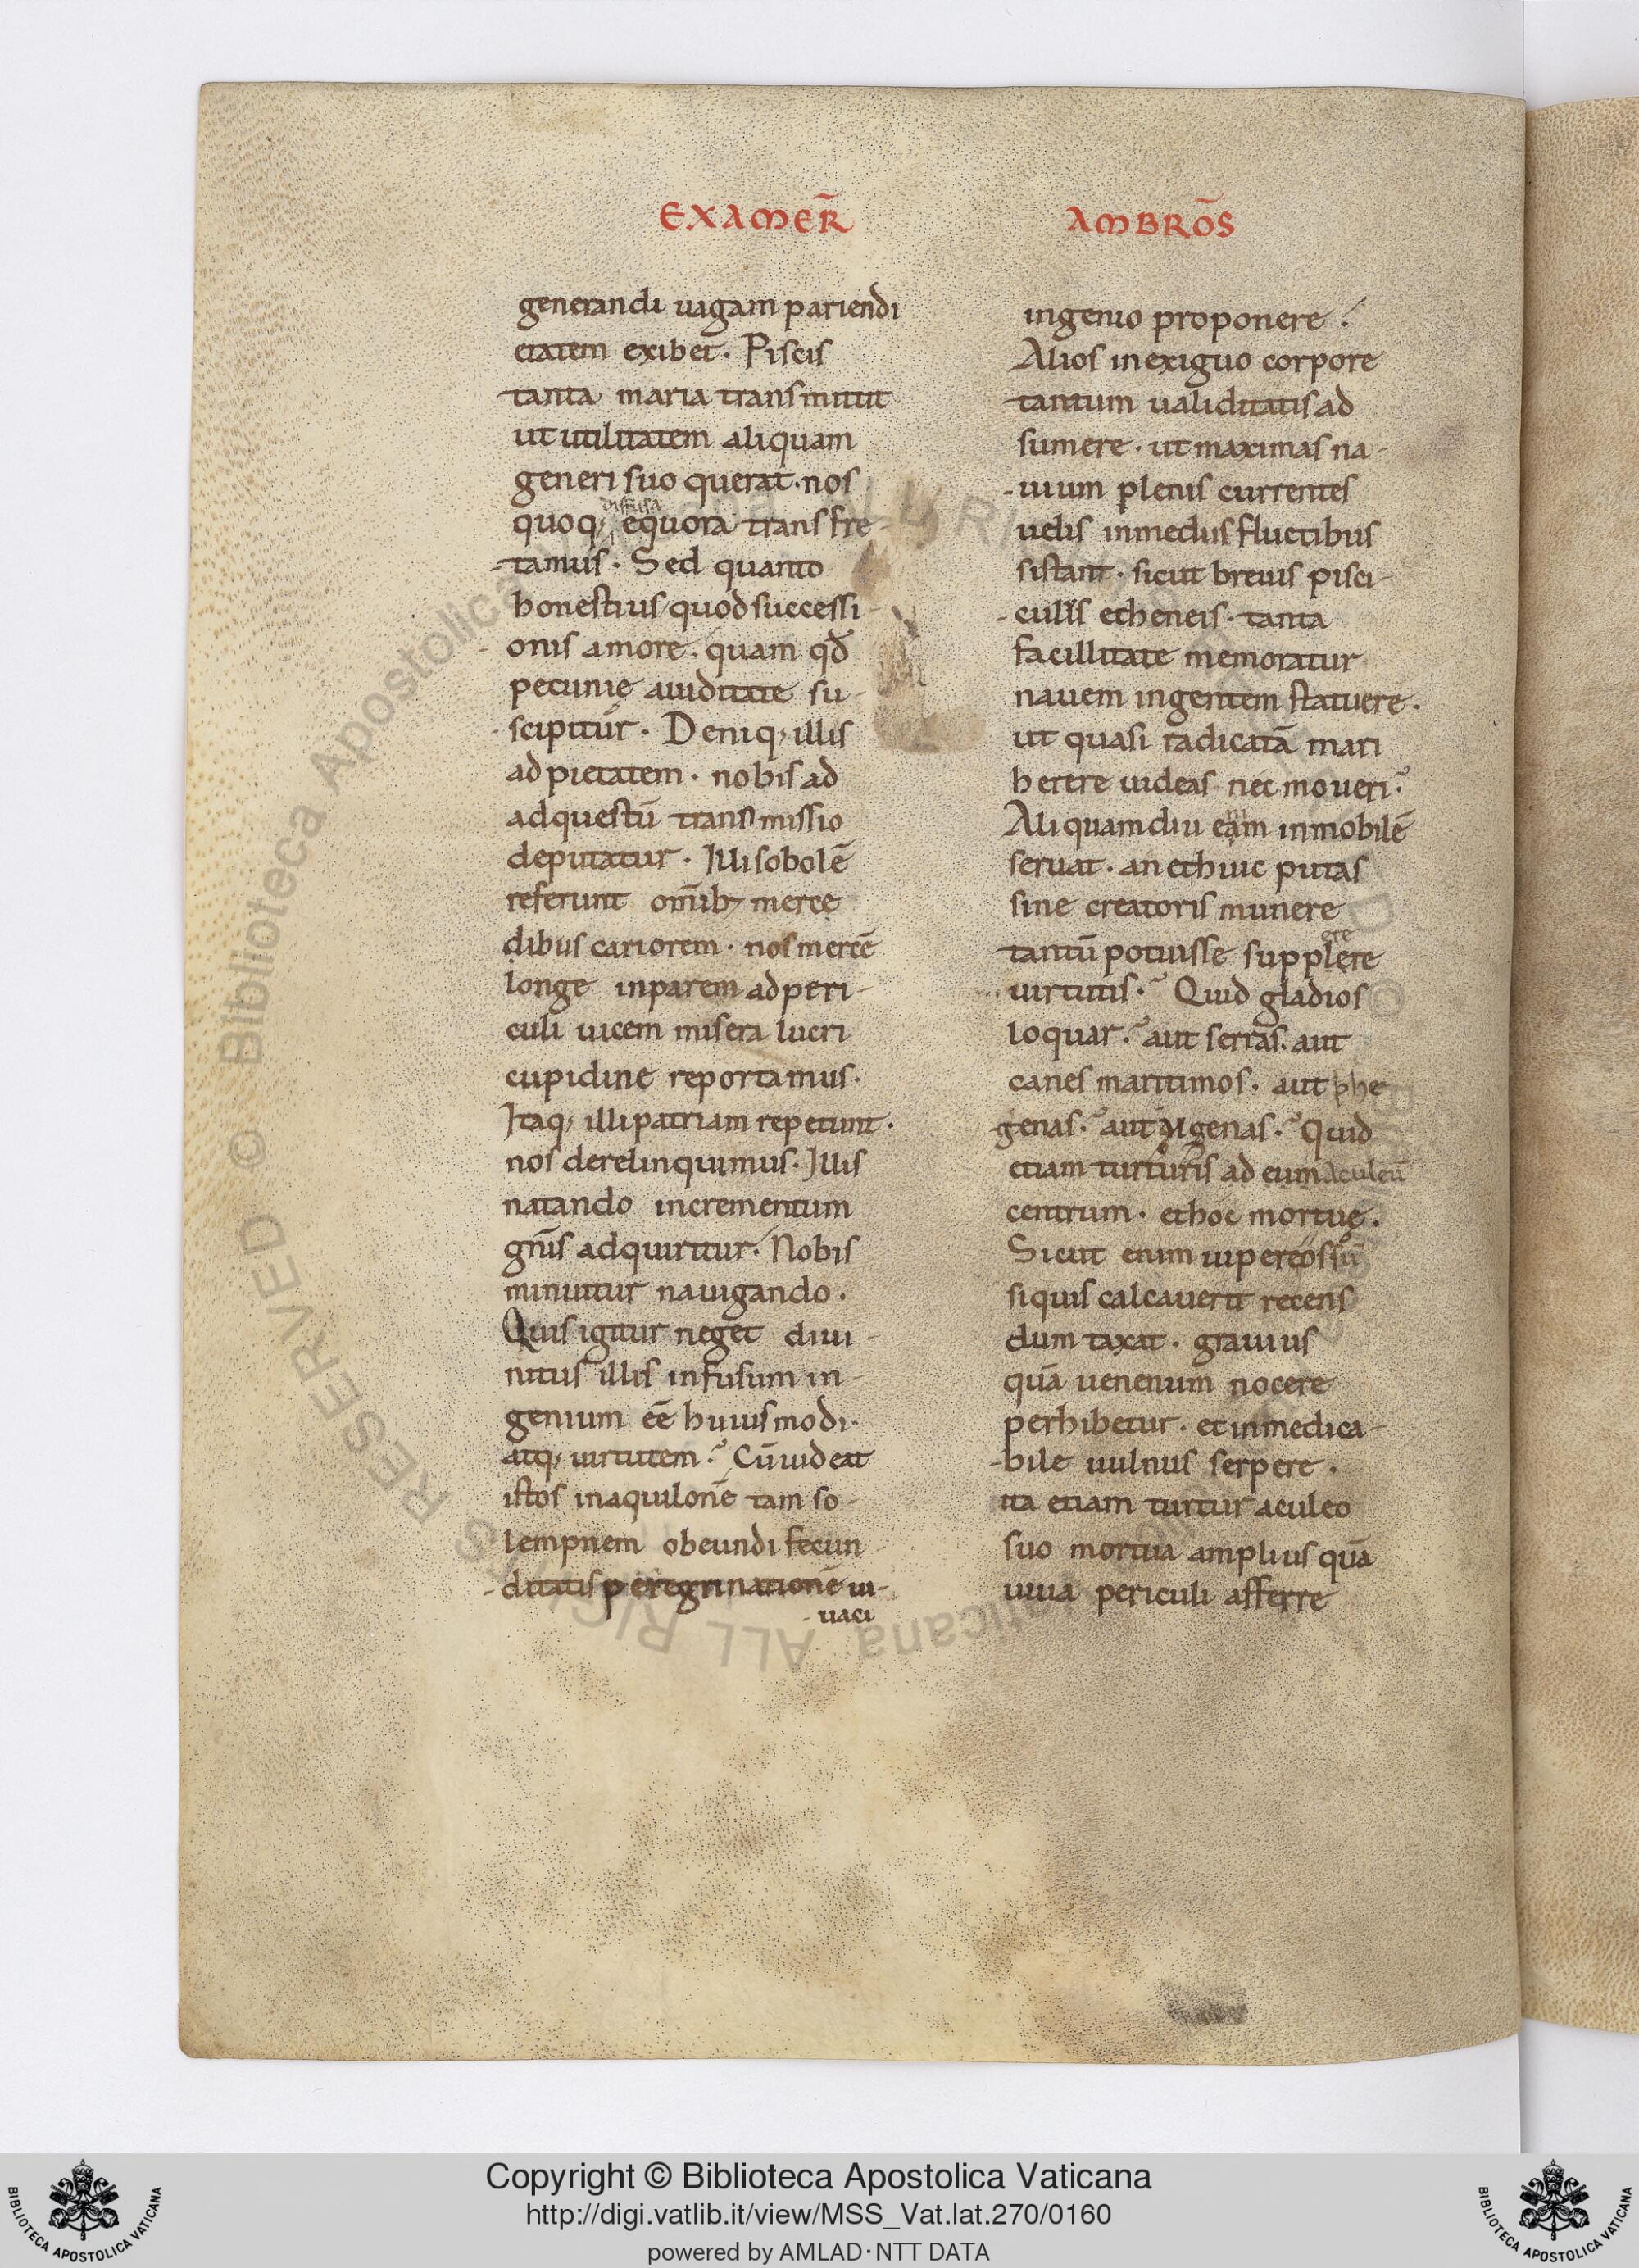 EXAMER̄
AMBRŌS
generandi uagam pariendi
etatem exibet. Piscis
tanta maria transmittit
ut utilitatem aliquam
generi suo querat. nos
diffusa
quoq; equora transfre-
tamus. Sed quanto
honestius quod successi-
onis amore. quam qđ
pecunię auiditate su-
scipitur. Deniq; illis
ad pietatem. nobis ad
adquestū transmissio
deputatur. Illi sobolē
referunt om̄ib; merce
dibus cariorem. nos mercē
longe inparem ad peri-
culi uicem misera lucri
cupidine reportamus.
Itaq; illi patriam repetunt.
nos derelinquimus. Illis
natando incrementum
gn̄is adquiritur. Nobis
minuitur nauigando.
Quis igitur neget diui-
nitus illis infusum in-
genium eē huiusmodi.
atq; uirtutem? Cū uideat
istos in aquilonē tam so-
lempnem obeundi fecun
ditatis peregrinationē ui-
uaci
ingenio proponere.
Alios in exiguo corpore
tantum ualiditatis ad
sumere. ut maximas na-
uium plenis currentes
uelis in mediis fluctibus
sistant. sicut breuis pisci-
culus etheneis. tanta
facillitate memoratur
nauem ingentem statuere.
ut quasi radicatā mari
herere uideas nec moueri?
Aliquamdiu eam inmobilē
seruat. an et huic putas
sine creatoris munere
ete
tantū potuisse supplere
uirtutis? Quid gladios
loquar? aut serras. aut
canes maritimos. aut phe
genas? aut genas? Quid
etiam turturis ad eum aculeū
centrum. et hoc mortuę.
Sicut enim uipere ossū
siquis calcauerit recens
dum taxat. grauius
quā uenenum nocere
perhibetur. et inmedica-
bile uulnus serpere.
ita etiam turtur aculeo
suo mortua amplius quā
uiua periculi afferre
Copyright © Biblioteca Apostolica Vaticana
http://digi.vatlib.it/view/MSS_Vat.lat.270/0160
powered by AMLAD·NTT DATA
BIBLIOTECA APOSTOLICA VATICANA
BIBLIOTECA APOSTOLICA VATICANA